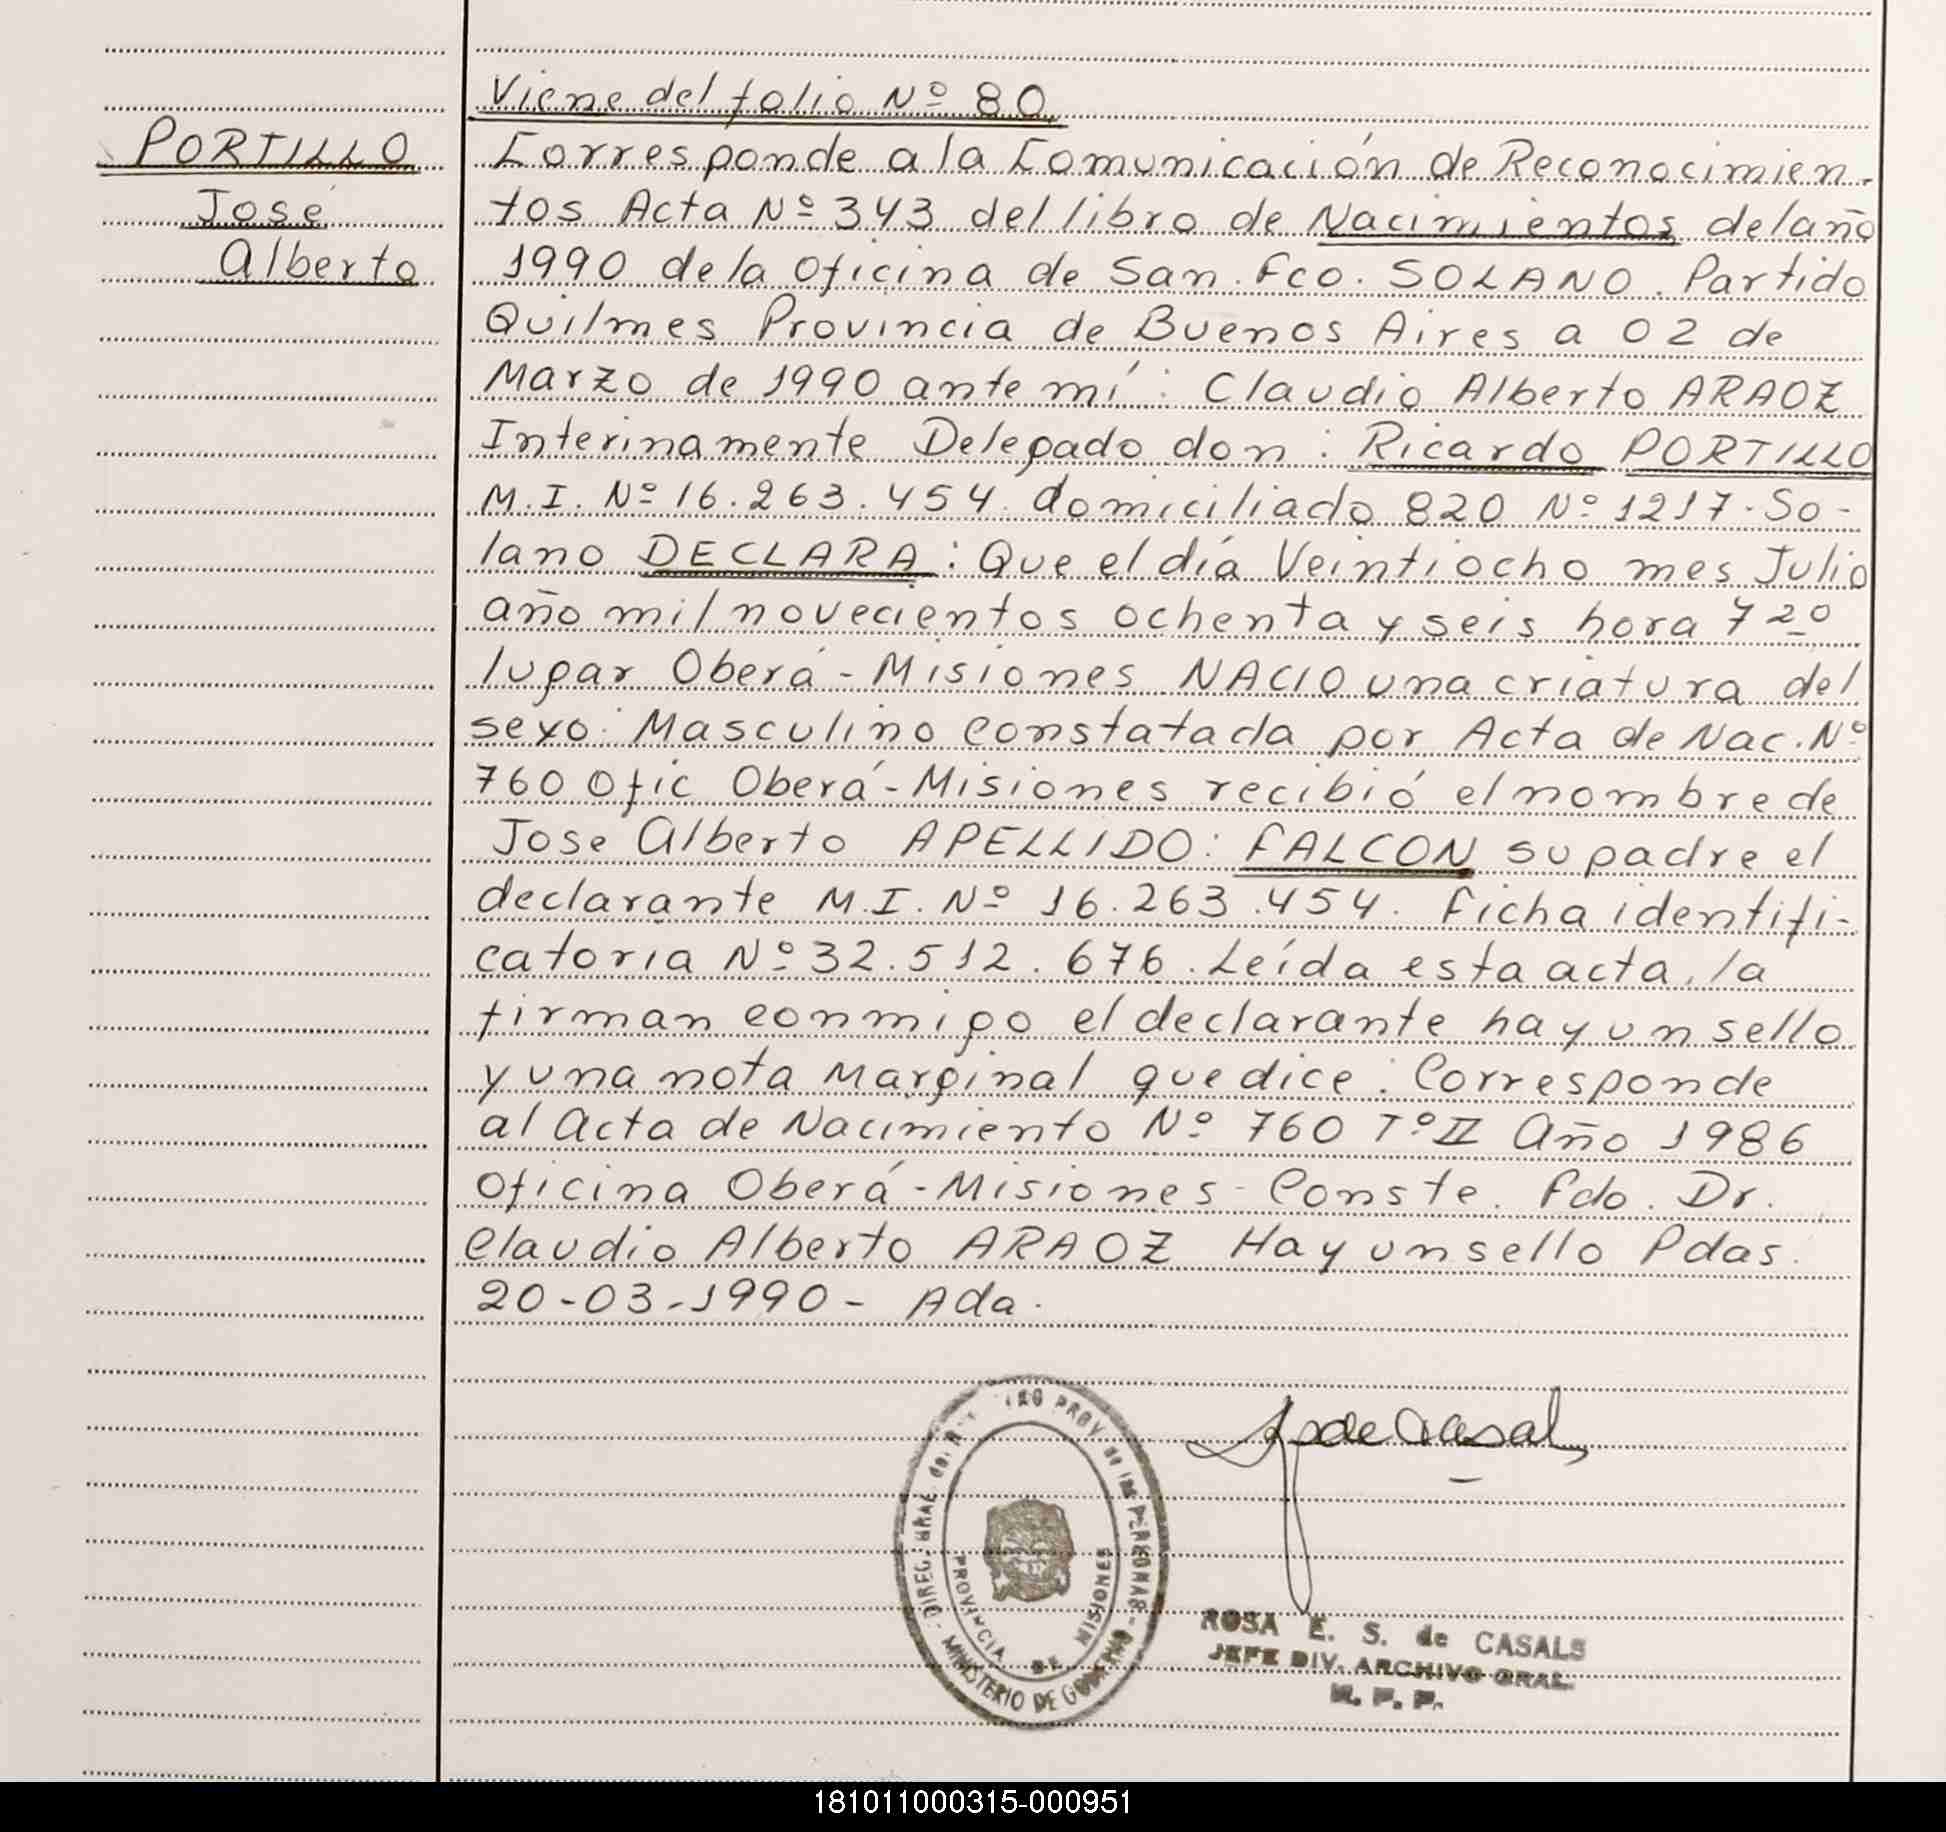 Viene del folio Nº 80
PORTILLO
José
Alberto
Corresponde a la Comunicación de Reconocimien-
tos Acta Nº 343 del libro de Nacimientos del año
1990 de la Oficina de San. Fco. SOLANO. Partido
Quilmes Provincia de Buenos Aires a 02 de
Marzo de 1990 ante mí: Claudio Alberto ARAOZ
Interinamente Delegado don: Ricardo PORTILLO
M.I. Nº 16.263.454. domiciliado 820 Nº 1217. So-
lano DECLARA: Que el día Veintiocho mes Julio
año mil novecientos ochenta y seis hora 7 20
lugar Oberá - Misiones NACIO una criatura del
sexo: Masculino constatada por Acta de Nac. Nº
760 Ofic Oberá - Misiones recibió el nombre de
Jose Alberto APELLIDO: FALCON su padre el
declarante M.I. Nº 16.263.454. Ficha identifi-
catoria Nº 32.512.676. Leída esta acta, la
firman conmigo el declarante hay un sello
y una nota Marginal que dice: Corresponde
al Acta de Nacimiento Nº 760 Tº II Año 1986
Oficina Oberá - Misiones - Conste. Fdo. Dr.
Claudio Alberto ARAOZ Hay un sello Pdas.
20-03-1990 - Ada.
DIREC. GRAL. del PROV de las PERSONAS
MINISTERIO DE GOBIERNO
PROVINCIA DE MISIONES
de Casals
ROSA E. S. de CASALS
JEFE DIV. ARCHIVO GRAL.
R. P. P.
181011000315-000951